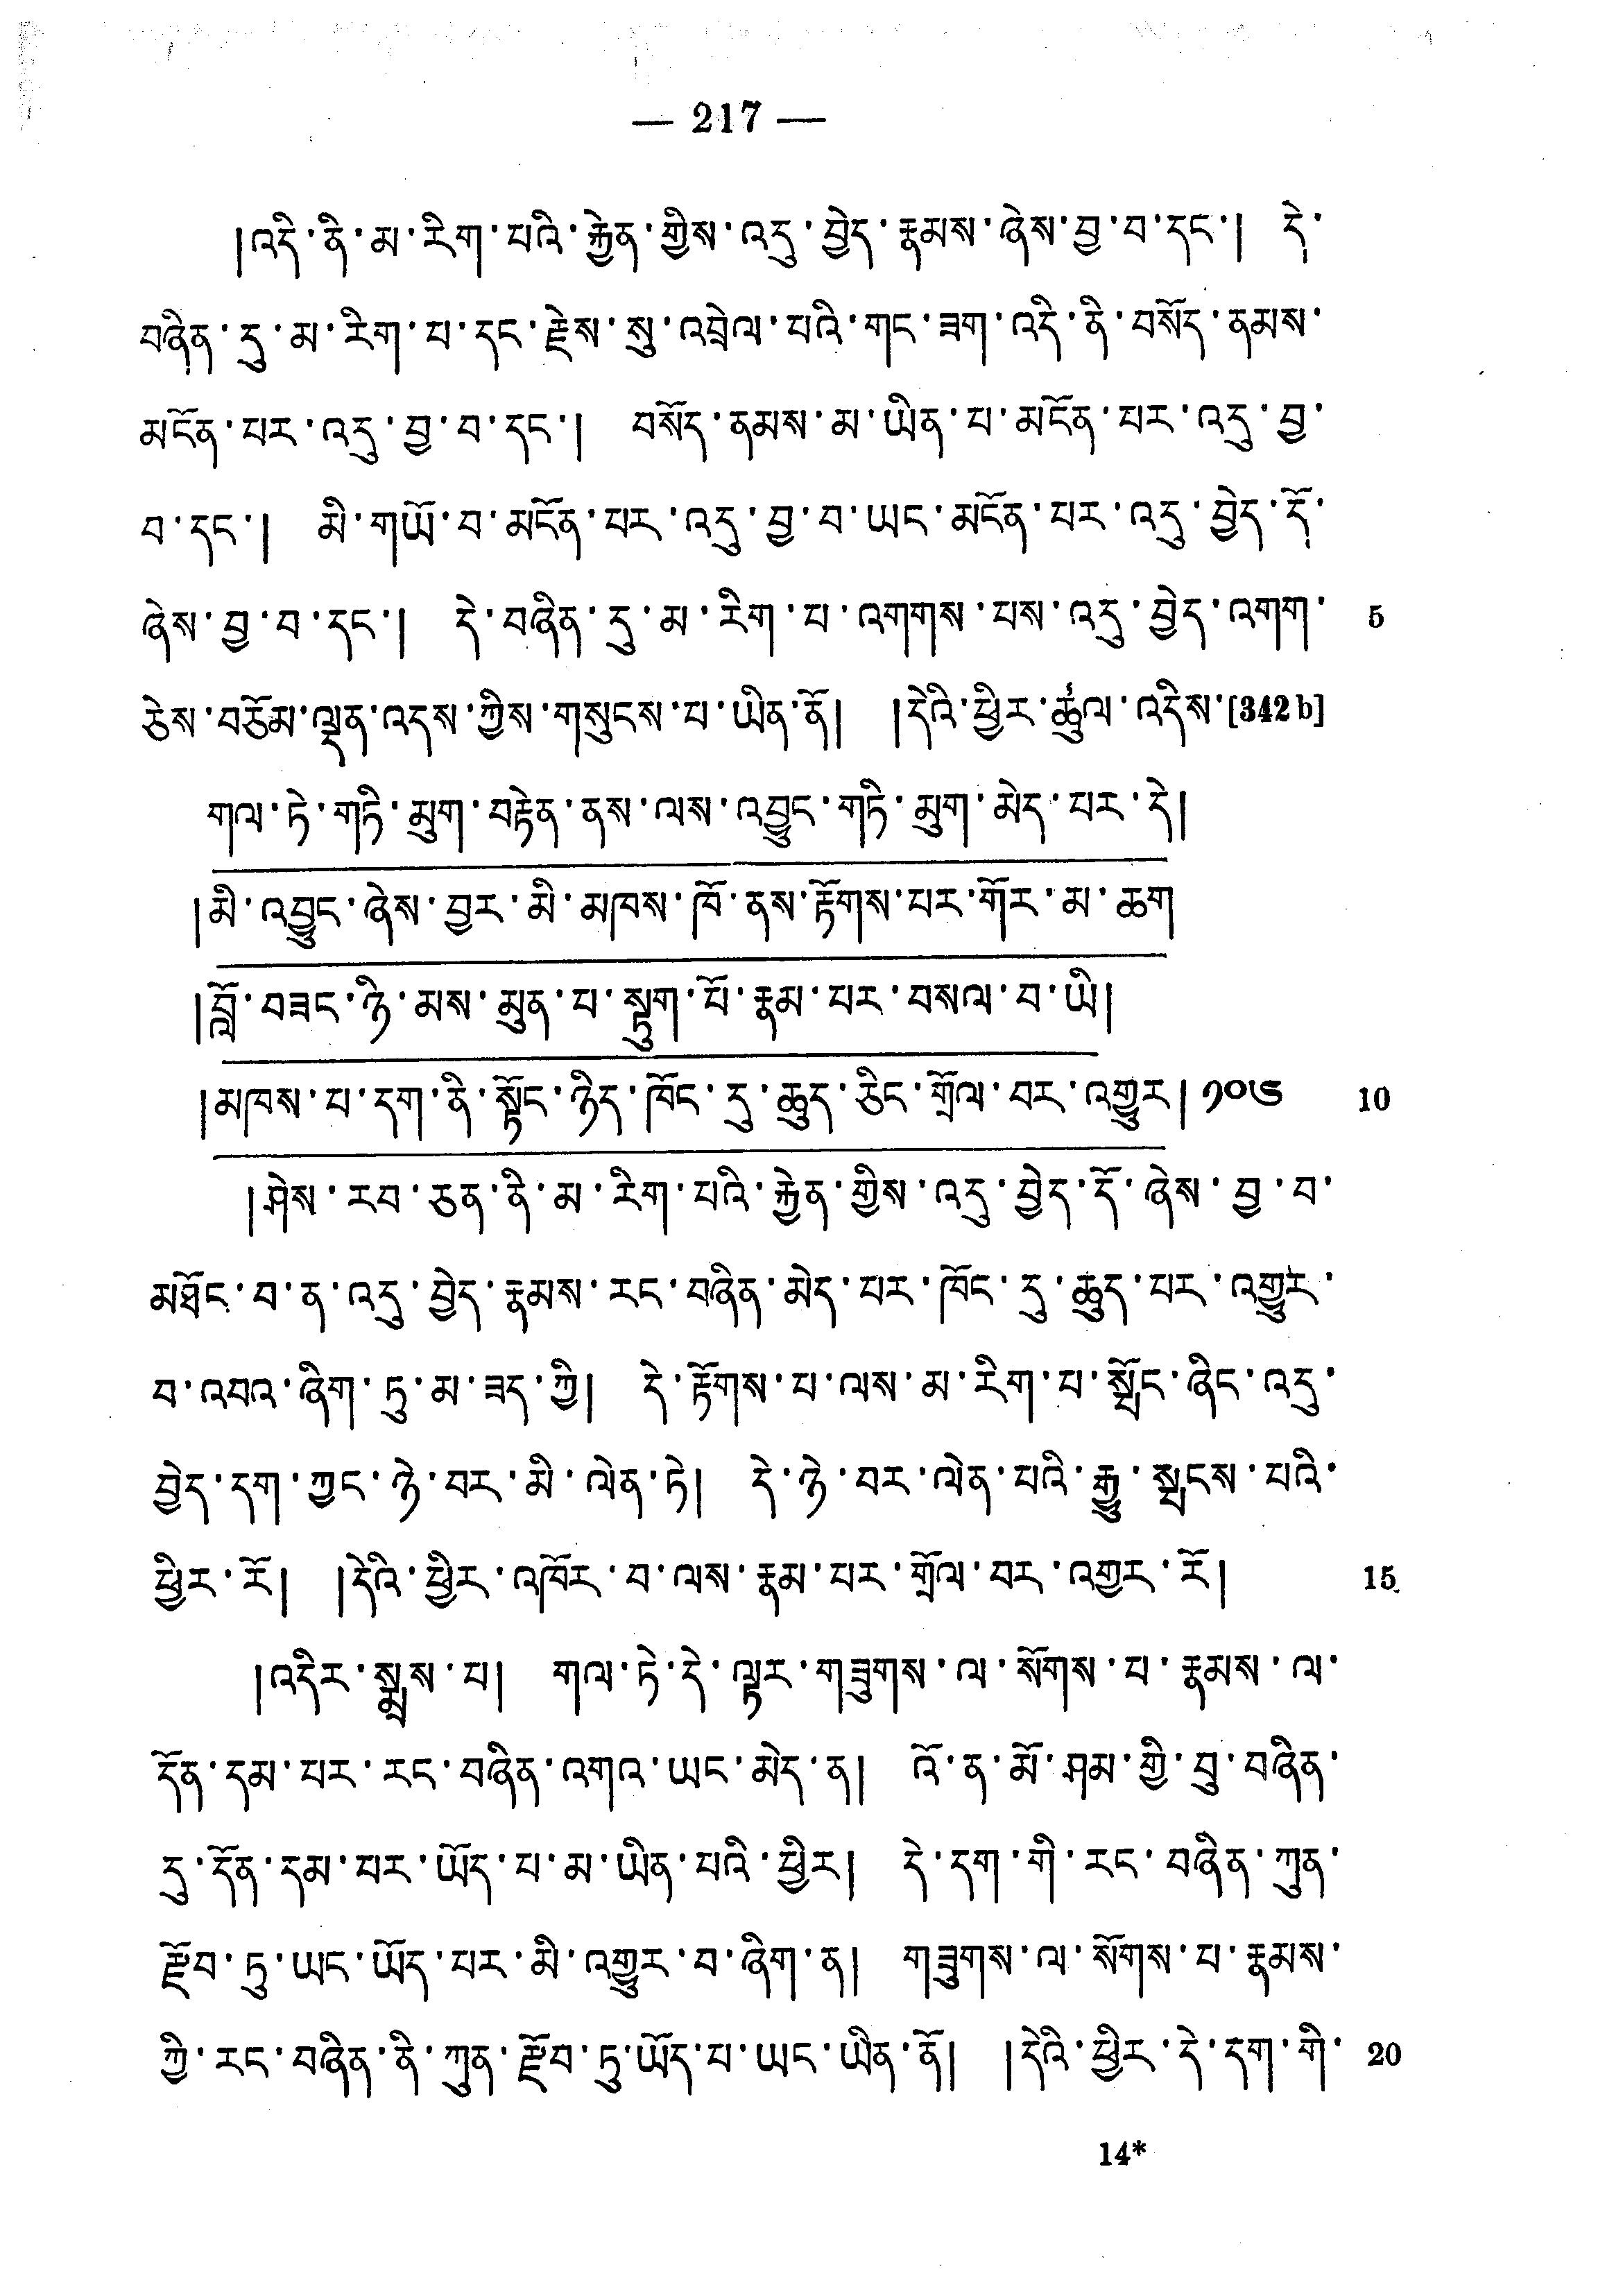 — 217 —
།འདི་ནི་མ་རིག་པའི་རྐྱེན་གྱིས་འདུ་བྱེད་རྣམས་ཞེས་བྱ་བ་དང་། དེ་
བཞིན་དུ་མ་རིག་པ་དང་རྗེས་སུ་འབྲེལ་པའི་གང་ཟག་འདི་ནི་བསོད་ནམས་
མངོན་པར་འདུ་བྱ་བ་དང་། བསོད་ནམས་མ་ཡིན་པ་མངོན་པར་འདུ་བྱ་
བ་དང་། མི་གཡོ་བ་མངོན་པར་འདུ་བྱ་བ་ཡང་མངོན་པར་འདུ་བྱེད་དོ་
ཞེས་བྱ་བ་དང་། དེ་བཞིན་དུ་མ་རིག་པ་འགགས་པས་འདུ་བྱེད་འགག་ 5
ཅེས་བཅོམ་ལྡན་འདས་ཀྱིས་གསུངས་པ་ཡིན་ནོ། །དེའི་ཕྱིར་ཚུལ་འདིས་[342 b]
གལ་ཏེ་གཏི་མུག་བརྟེན་ནས་ལས་འབྱུང་གཏི་མུག་མེད་པར་དེ།
།མི་འབྱུང་ཞེས་བྱར་མི་མཁས་ཁོ་ནས་རྟོགས་པར་གོར་མ་ཆག
།བློ་བཟང་ཉི་མས་མུན་པ་སྟུག་པོ་རྣམ་པར་བསལ་བ་ཡི།
།མཁས་པ་དག་ནི་སྟོང་ཉིད་ཁོང་དུ་ཆུད་ཅིང་གྲོལ་བར་འགྱུར། ༡༠༦ 10
།ཤེས་རབ་ཅན་ནི་མ་རིག་པའི་རྐྱེན་གྱིས་འདུ་བྱེད་དོ་ཞེས་བྱ་བ་
མཐོང་བ་ན་འདུ་བྱེད་རྣམས་རང་བཞིན་མེད་པར་ཁོང་དུ་ཆུད་པར་འགྱུར་
བ་འབའ་ཞིག་ཏུ་མ་ཟད་ཀྱི། དེ་རྟོགས་པ་ལས་མ་རིག་པ་སྤོང་ཞིང་འདུ་
བྱེད་དག་ཀྱང་ཉེ་བར་མི་ལེན་ཏེ། དེ་ཉེ་བར་ལེན་པའི་རྒྱུ་སྤངས་པའི་
ཕྱིར་རོ། །དེའི་ཕྱིར་འཁོར་བ་ལས་རྣམ་པར་གྲོལ་བར་འགྱར་རོ། 15
།འདིར་སྨྲས་པ། གལ་ཏེ་དེ་ལྟར་གཟུགས་ལ་སོགས་པ་རྣམས་ལ་
དོན་དམ་པར་རང་བཞིན་འགའ་ཡང་མེད་ན། འོ་ན་མོ་ཤམ་གྱི་བུ་བཞིན་
དུ་དོན་དམ་པར་ཡོད་པ་མ་ཡིན་པའི་ཕྱིར། དེ་དག་གི་རང་བཞིན་ཀུན་
རྫོབ་ཏུ་ཡང་ཡོད་པར་མི་འགྱུར་བ་ཞིག་ན། གཟུགས་ལ་སོགས་པ་རྣམས་
ཀྱི་རང་བཞིན་ནི་ཀུན་རྫོབ་ཏུ་ཡོད་པ་ཡང་ཡིན་ནོ། །དེའི་ཕྱིར་དེ་དག་གི་ 20
14*